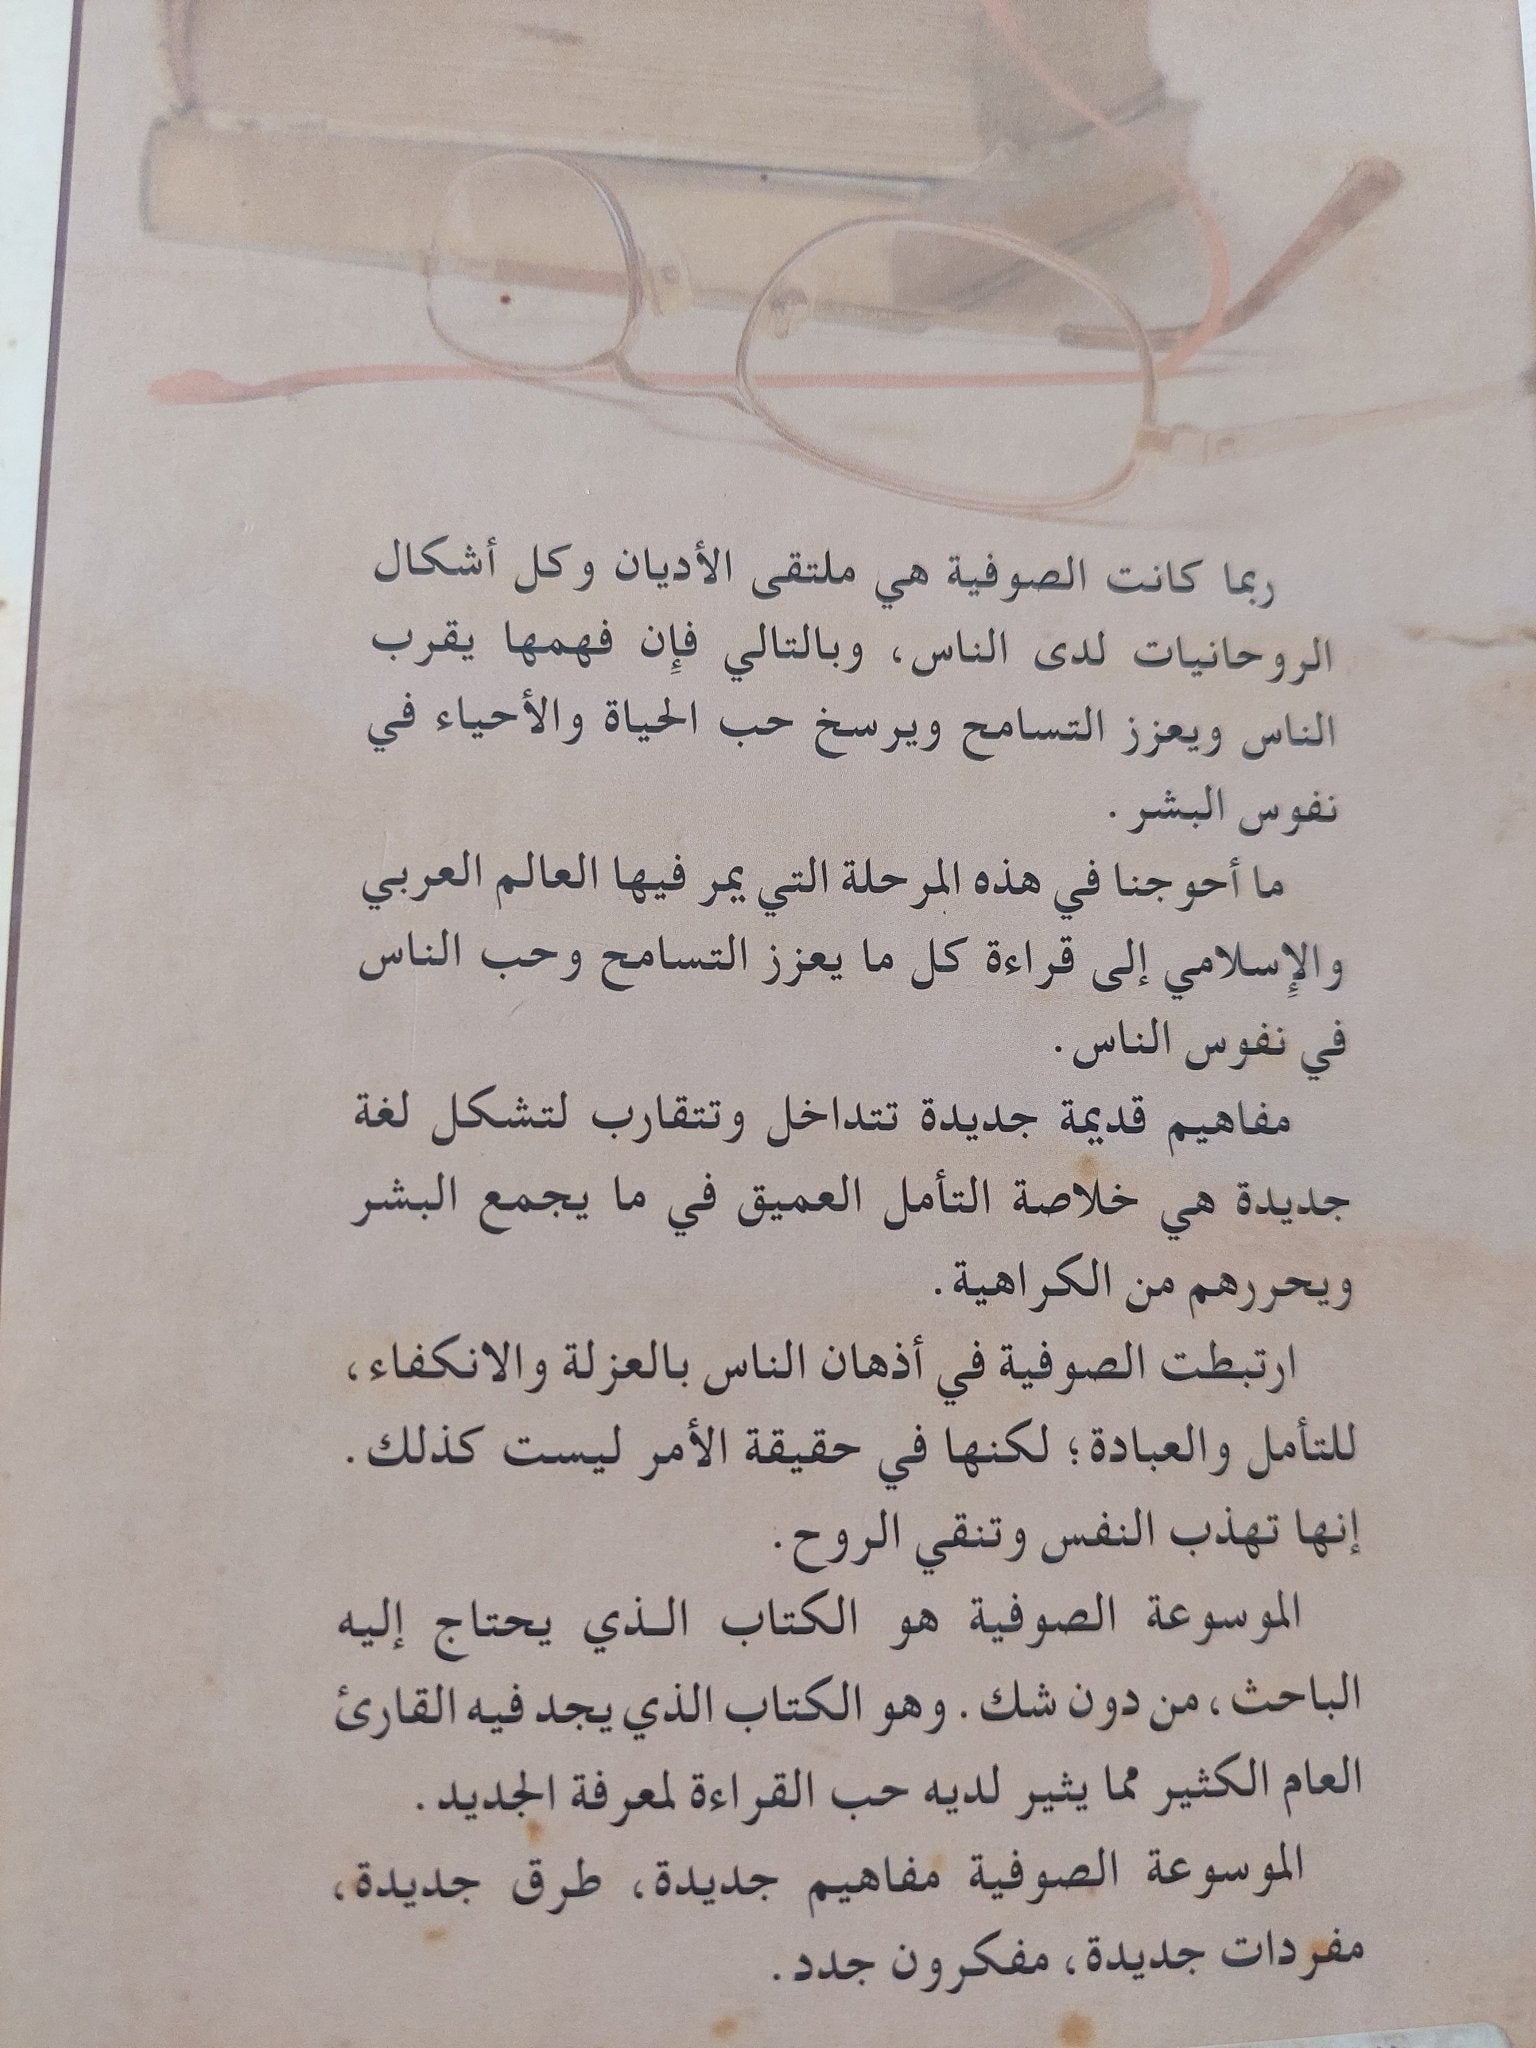 ربما كانت الصوفية هي ملتقى الأديان وكل أشكال
الروحانيات لدى الناس، وبالتالي فإن فهمها يقرب
الناس ويعزز التسامح ويرسخ حب الحياة والأحياء في
نفوس البشر.
ما أحوجنا في هذه المرحلة التي يمر فيها العالم العربي
والإسلامي إلى قراءة كل ما يعزز التسامح وحب الناس
في نفوس الناس.
مفاهيم قديمة جديدة تتداخل وتتقارب لتشكل لغة
جديدة هي خلاصة التأمل العميق في ما يجمع البشر
ويحررهم من الكراهية.
ارتبطت الصوفية في أذهان الناس بالعزلة والانكفاء،
للتأمل والعبادة؛ لكنها في حقيقة الأمر ليست كذلك.
إنها تهذب النفس وتنقي الروح.
الموسوعة الصوفية هو الكتاب الذي يحتاج إليه
الباحث، من دون شك. وهو الكتاب الذي يجد فيه القارئ
العام الكثير مما يثير لديه حب القراءة لمعرفة الجديد.
الموسوعة الصوفية مفاهيم جديدة، طرق جديدة،
مفردات جديدة، مفكرون جدد.